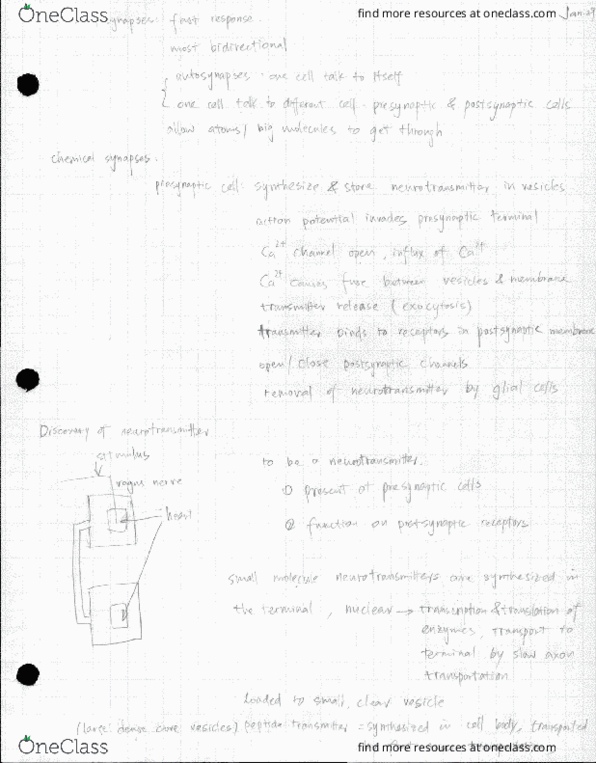 OneClass
find more resources at oneclass.com
Jan 29
synapses: fast response
most bidirectional
autosynapses: one cell talk to itself
one cell talk to different cell - presynaptic & postsynaptic cells
allow atoms / big molecules to get through
chemical synapses:
presynaptic cell: synthesize & store neurotransmitter in vesicles
action potential invades presynaptic terminal
Ca²⁺ channel open, influx of Ca²⁺
Ca²⁺ causes fuse between vesicles & membrane
transmitter release (exocytosis)
transmitter binds to receptors in postsynaptic membrane
open / close postsynaptic channels
removal of neurotransmitter by glial cells
Discovery of neurotransmitter
stimulus
vagus nerve
heart
to be a neurotransmitter:
① present at presynaptic cells
② function on postsynaptic receptors
small molecule neurotransmitters are synthesized in
the terminal, nuclear → transcription & translation of
enzymes, transport to
terminal by slow axon
transportation
loaded to small, clear vesicle
(large dense core vesicles) peptide transmitter = synthesized in cell body, transported
OneClass
find more resources at oneclass.com